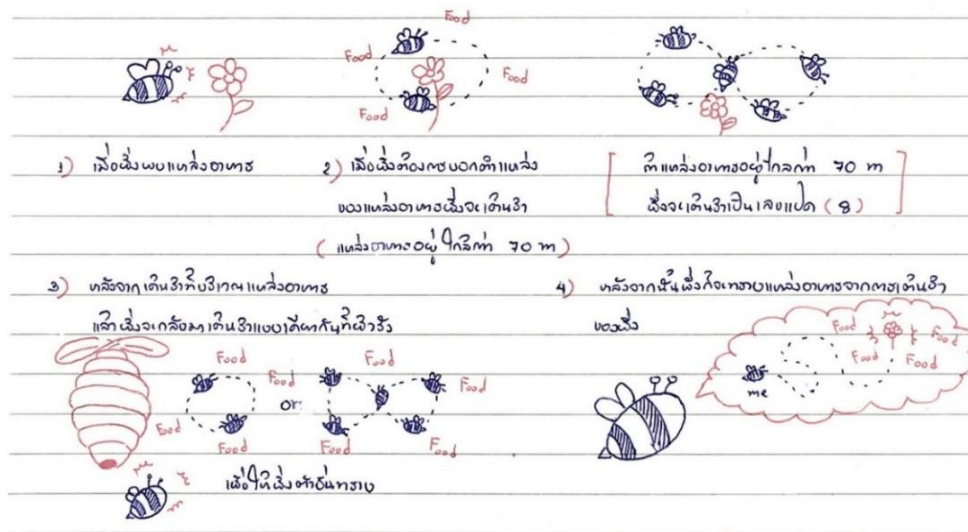 Food
Food
Food
Food
Food
1) เมื่อผึ้งพบแหล่งอาหาร
2) เมื่อผึ้งต้องการบอกตำแหน่ง
ของแหล่งอาหารผึ้งจะเต้นรำ
( แหล่งอาหารอยู่ใกล้กว่า 70 m )
[ ถ้าแหล่งอาหารอยู่ไกลกว่า 70 m
ผึ้งจะเต้นรำเป็นเลขแปด ( 8 ) ]
3) หลังจากเต้นรำที่บริเวณแหล่งอาหาร
แล้วผึ้งจะกลับมาเต้นรำแบบเดียวกันที่ผิวรัง
Food Food Food
Food
or
Food
Food Food Food
เพื่อให้ผึ้งตัวอื่นทราบ
4) หลังจากนั้นผึ้งก็จะทราบแหล่งอาหารจากการเต้นรำ
ของผึ้ง
Food Food
Food Food
me